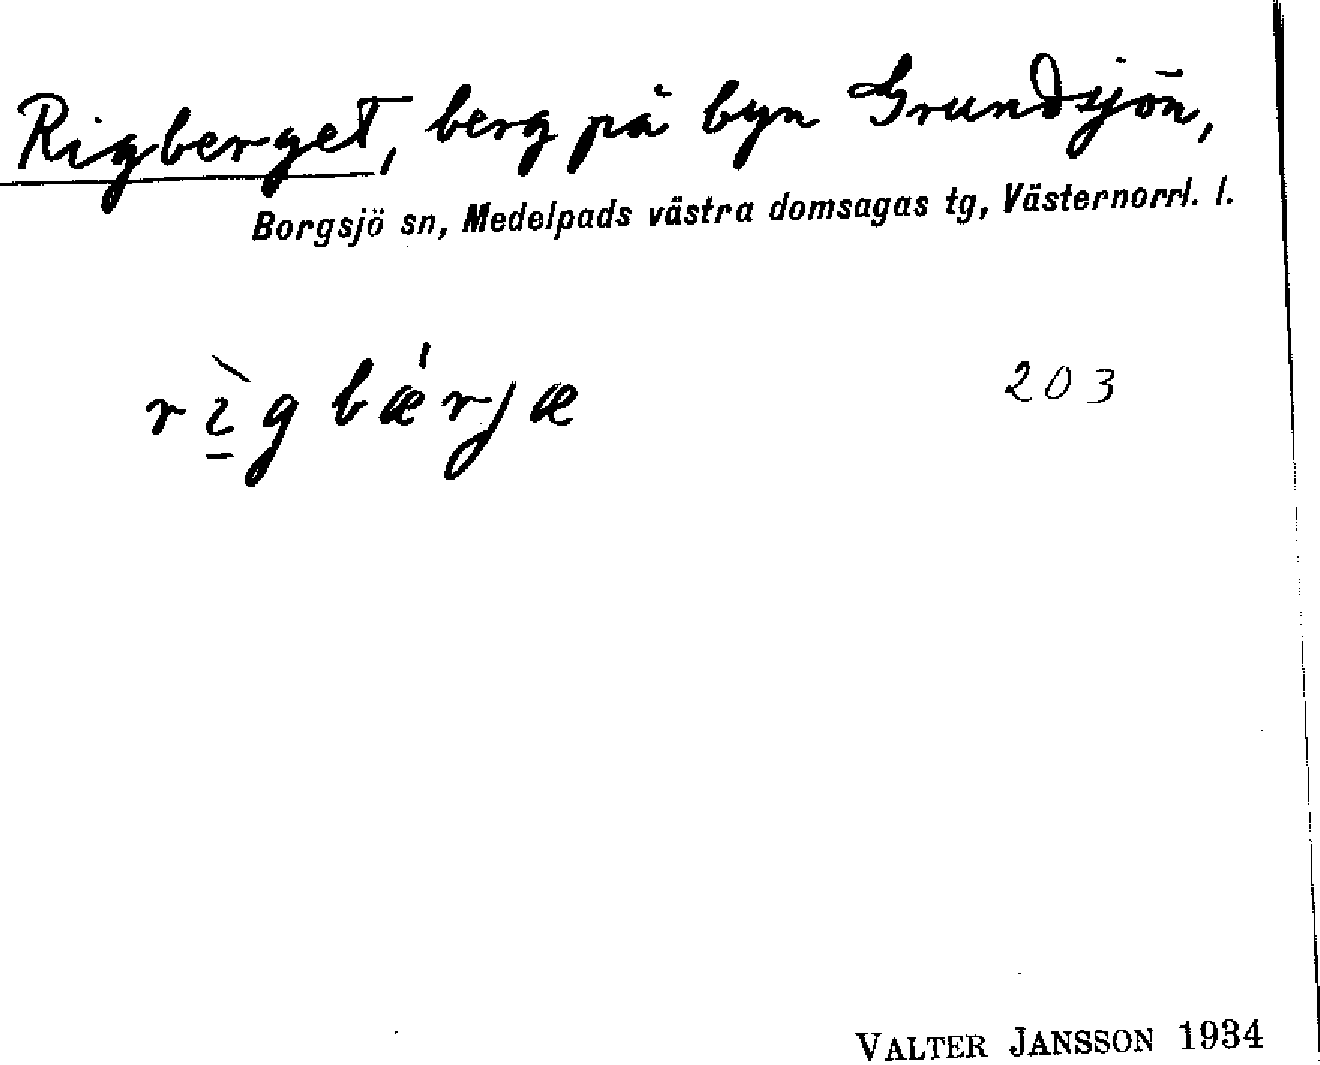 Rigberget, berg på byn Grundsjön,
Borgsjö sn, Medelpads västra domsagas tg, Västernorrl. l.
rı̱̀gbǽrjæ 203
VALTER JANSSON 1934